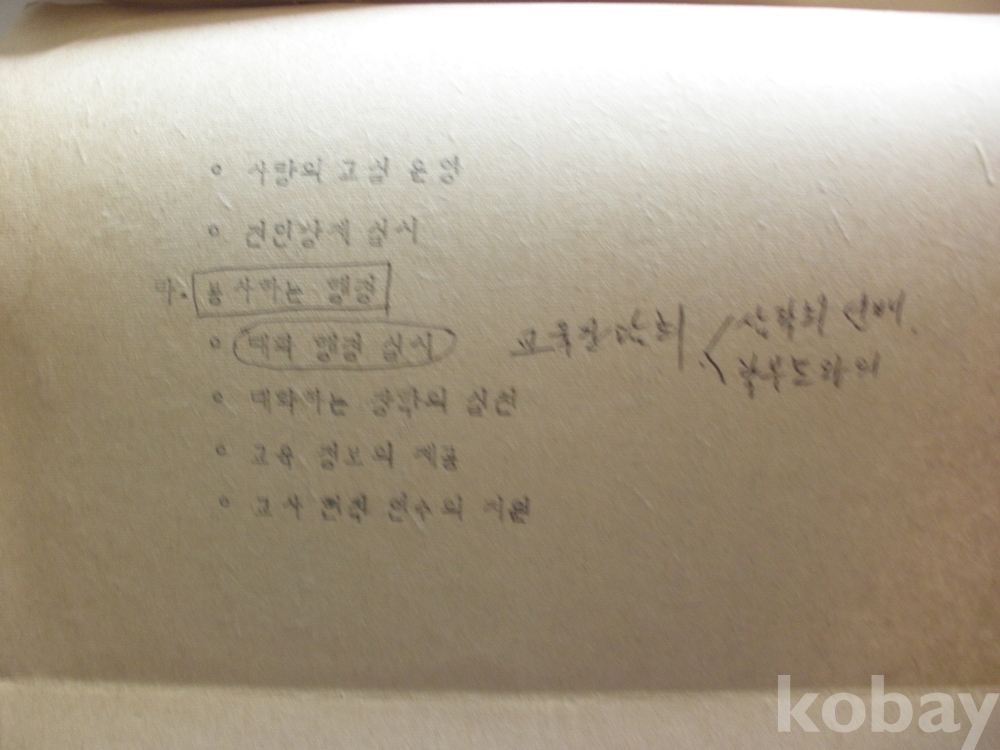 ◦ 사랑의 교실 운영
◦ 전인장제 실시
마. 봉사하는 행정
◦ 대화 행정 실시
◦ 대화하는 장학의 실천
◦ 교육 정보의 제공
◦ 교사 현직 연수의 지원
산학의 연배.
학부모와의
kobay